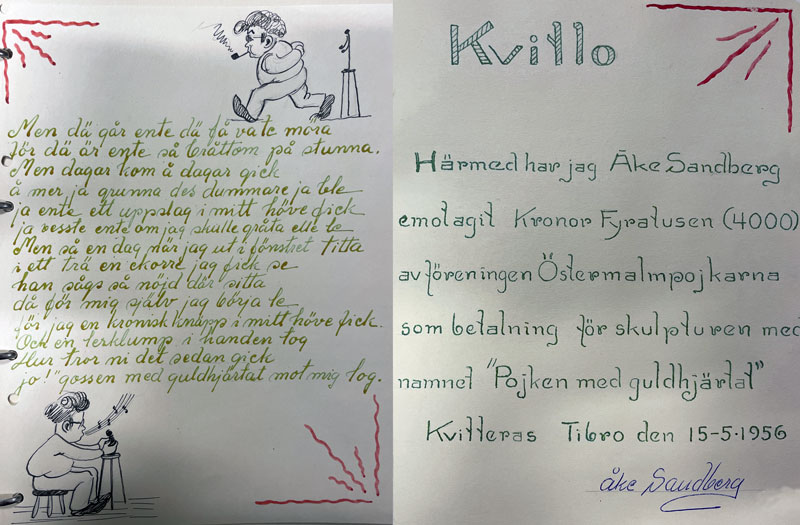 Men dä går ente dä få va te mora
för dä är ente så bråttom på stunna.
Men dagar kom å dagar gick
å mer ja grunna des dummare ja ble
ja ente ett uppslag i mitt höve fick
ja vesste ente om jag skulle gråta elle le
Men så en dag när jag ut i fönstret titta
i ett trä en ekorre jag fick se
han sågs så nöjd där sitta
då för mig själv jag börja le
för jag en kromisk knäpp i mitt höve fick.
Ock en lerklump i handen tog
Hur tror ni det sedan gick
jo! "gossen med guldhjärtat mot mig log.
Kvitto
Härmed har jag Åke Sandberg
emotagit Kronor Fyratusen (4000)
av föreningen Östermalmpojkarna
som betalning för skulpturen med
namnet "Pojken med guldhjärtat"
Kvitteras Tibro den 15-5-1956
Åke Sandberg